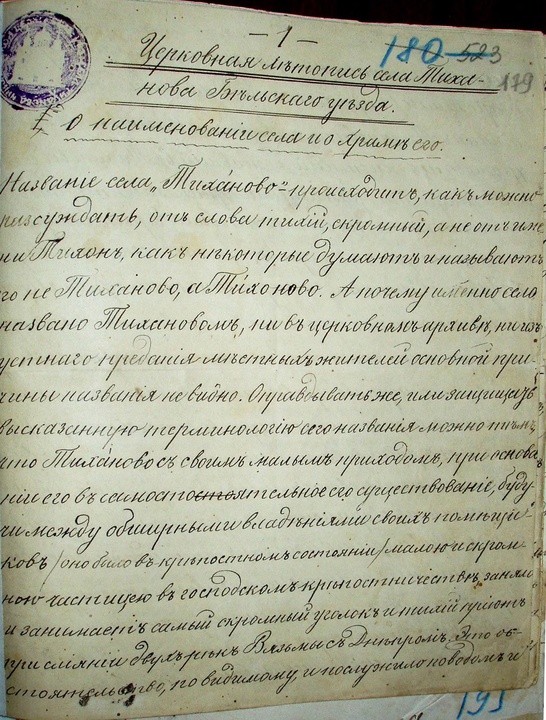 — 1 —
180 523
179
Церковная лѣтопись села Тиха-
нова Бѣльскаго уѣзда.
I О наименованіи села и о храмѣ его.
Названіе села „Тиха́ново“ происходитъ, какъ можно
разсуждать, отъ слова тихій, скромный, а не отъ име
ни Тихонъ, какъ нѣкоторые думаютъ и называютъ
его не Тиха́ново, а Ти́хоново. А почему именно село
названо Тихановомъ, ни въ церковномъ архивѣ, ни изъ
устнаго преданія мѣстныхъ жителей основной при
чины названія не видно. Оправдывать же, или защищать
высказанную терминологію его названія можно тѣмъ,
что Тиха́ново съ своимъ малымъ приходомъ, при основа
ніи его въ самостоятельное его существованіе, буду
чи между обширными владѣніями своихъ помѣщи-
ковъ /оно было въ крѣпостномъ состояніи/ малою и скром-
ною частицею въ господскомъ крѣпостничествѣ, заняло
и занимаетъ самый скромный уголокъ и тихій пріютъ
при сліяніи двухъ рѣкъ Вязьмы съ Днѣпромъ. Это об-
стоятельство, по видимому, и послужило поводомъ къ
193